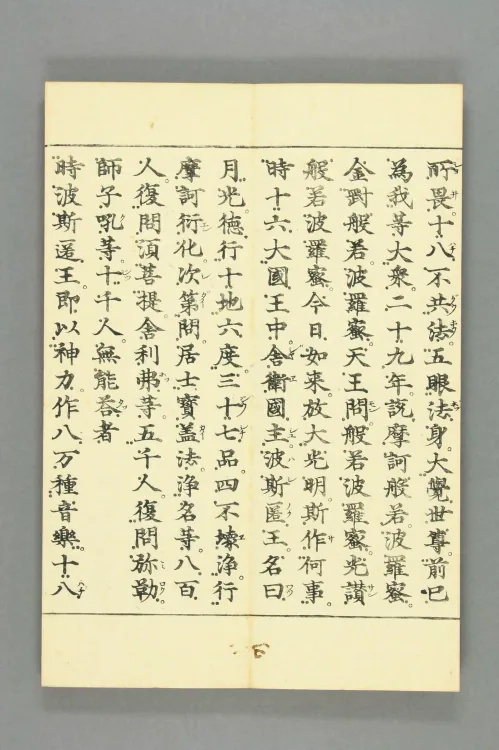 所畏十八不共法五眼法身大覺世尊前已
為我等大衆二十九年說摩訶般若波羅蜜
金剛般若波羅蜜天王問般若波羅蜜光讃
般若波羅蜜今日如来放大光明斯作何事
時十六大國王中舎衛國主波斯匿王名曰
月光德行十地六度三十七品四不壊淨行
摩訶衍化次第問居士寶盖法淨名等八百
人復問湏菩提舎利弗等五千人復問弥勒
師子吼等十千人無能荅者
時波斯匿王即以神力作八万種音樂十八